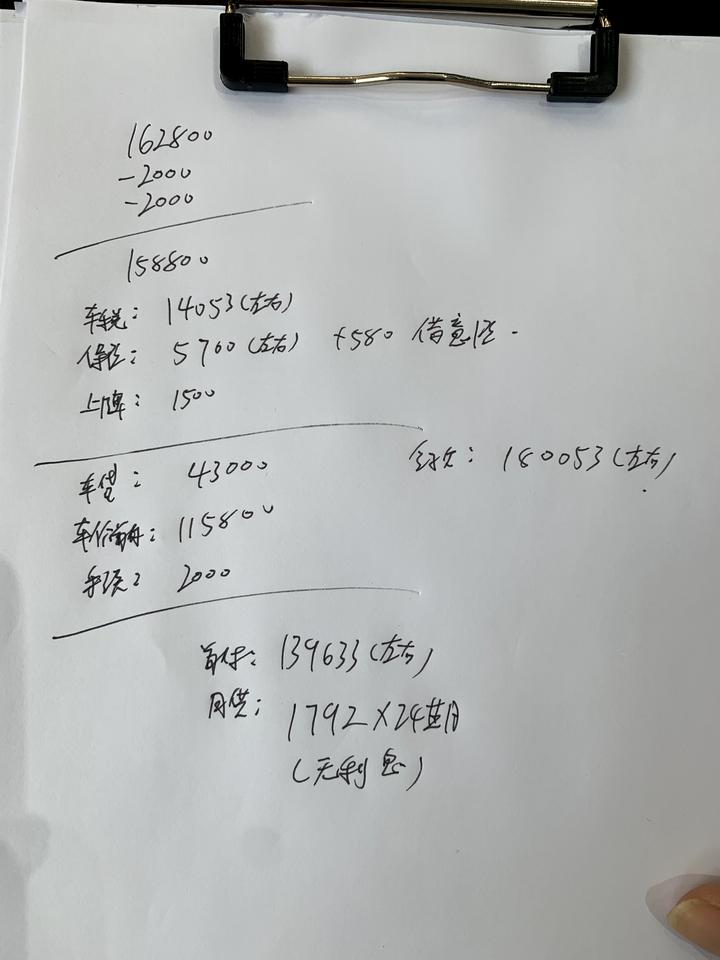 162800
-2000
-2000
158800
车税: 14053(左右)
保险: 5700(左右) +580 借意险.
上牌: 1500
全款: 180053(左右)
车贷: 43000
车价首付: 115800
手续: 2000
首付: 139633(左右)
月供: 1792×24期
(无利息)